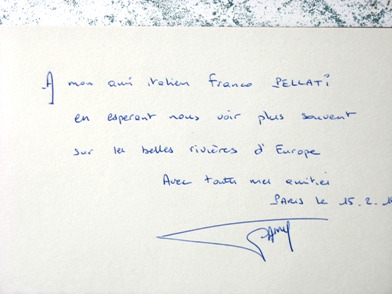 A mon ami italien Franco PELLATI
en esperant nous voir plus souvent
sur les belles rivières d'Europe
Avec toutes mes amitiés
PARIS le 15.2.1